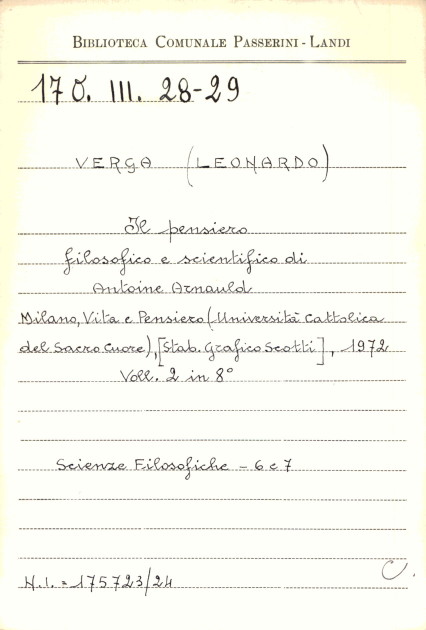 BIBLIOTECA COMUNALE PASSERINI - LANDI
17 O. III. 28-29
VERGA (LEONARDO)
Il pensiero
filosofico e scientifico di
Antoine Arnauld
Milano, Vita e Pensiero (Università Cattolica
del Sacro Cuore), [Stab. Grafico Scotti], 1972
Voll. 2 in 8°
Scienze Filosofiche - 6 e 7
N.I. = 175723/24
C.